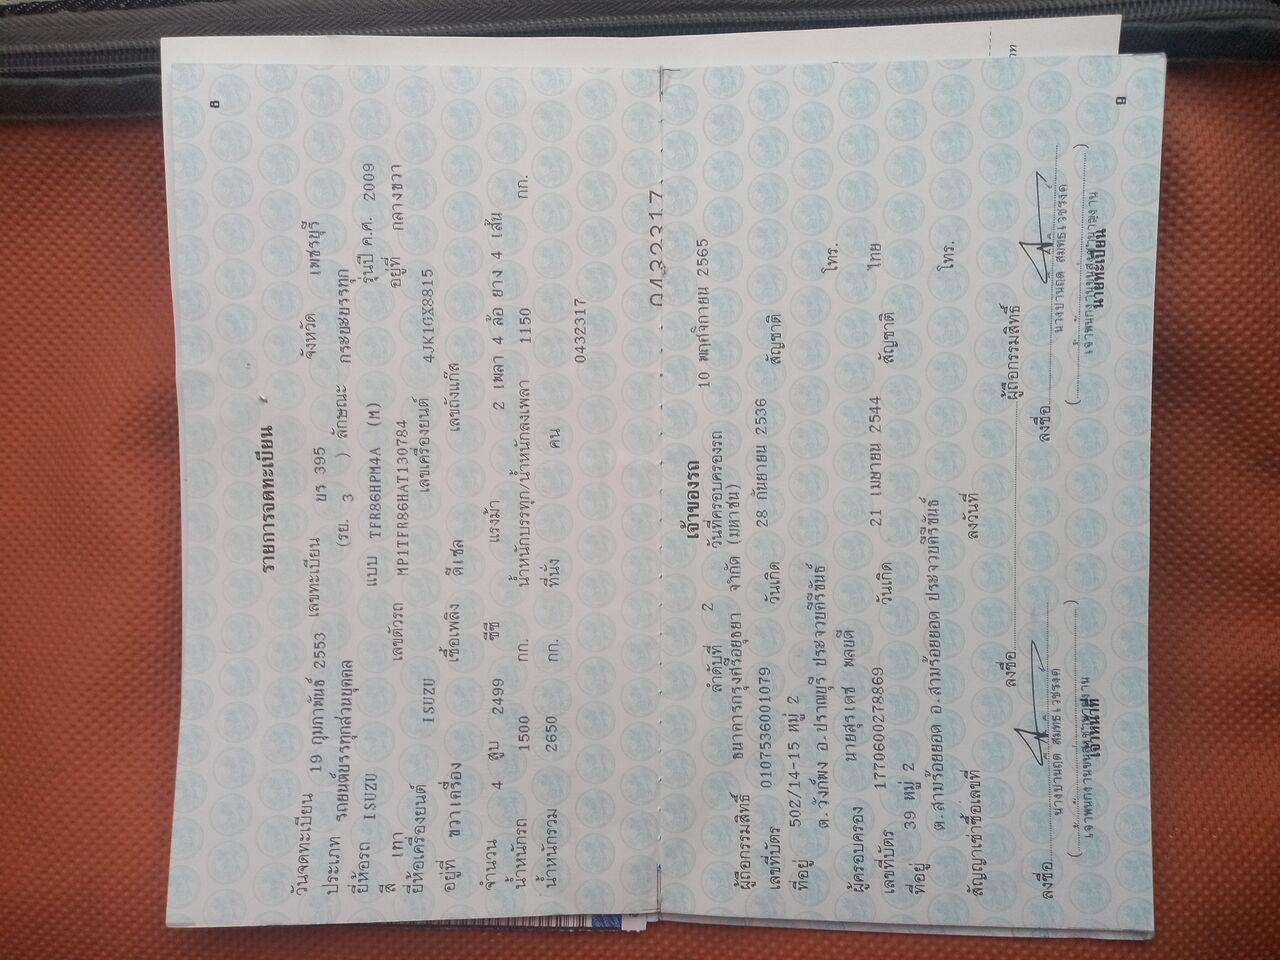 8
รายการจดทะเบียน
วันจดทะเบียน 19 กุมภาพันธ์ 2553 เลขทะเบียน บร 395 จังหวัด เพชรบุรี
ประเภท รถยนต์บรรทุกส่วนบุคคล (รย. 3 ) ลักษณะ กระบะบรรทุก
ยี่ห้อรถ ISUZU แบบ TFR86HPM4A (M) รุ่นปี ค.ศ. 2009
สี เทา เลขตัวรถ MP1TFR86HAT130784 อยู่ที่ กลางขวา
ยี่ห้อเครื่องยนต์ ISUZU เลขเครื่องยนต์ 4JK1GX8815
อยู่ที่ ขวาเครื่อง เชื้อเพลิง ดีเซล เลขถังแก๊ส
จำนวน 4 สูบ 2499 ซีซี แรงม้า 2 เพลา 4 ล้อ ยาง 4 เส้น
น้ำหนักรถ 1500 กก. น้ำหนักบรรทุก/น้ำหนักลงเพลา 1150 กก.
น้ำหนักรวม 2650 กก. ที่นั่ง คน
0432317
0432317
เจ้าของรถ
ลำดับที่ 2 วันที่ครอบครองรถ 10 พฤศจิกายน 2565
ผู้ถือกรรมสิทธิ์ ธนาคารกรุงศรีอยุธยา จำกัด (มหาชน)
เลขที่บัตร 0107536001079 วันเกิด 28 กันยายน 2536 สัญชาติ
ที่อยู่ 502/14-15 หมู่ 2
ต.วังก์พง อ.ปราณบุรี ประจวบคีรีขันธ์ โทร.
ผู้ครอบครอง นายสุรเดช พลบดี
เลขที่บัตร 1770600278869 วันเกิด 21 เมษายน 2544 สัญชาติ ไทย
ที่อยู่ 39 หมู่ 2
ต.สามร้อยยอด อ.สามร้อยยอด ประจวบคีรีขันธ์ โทร.
สัญญาเช่าซื้อเลขที่ ลงวันที่
ลงชื่อ ผู้ถือกรรมสิทธิ์
ลงชื่อ ลงชื่อ
เจ้าหน้าที่ นายทะเบียน
9